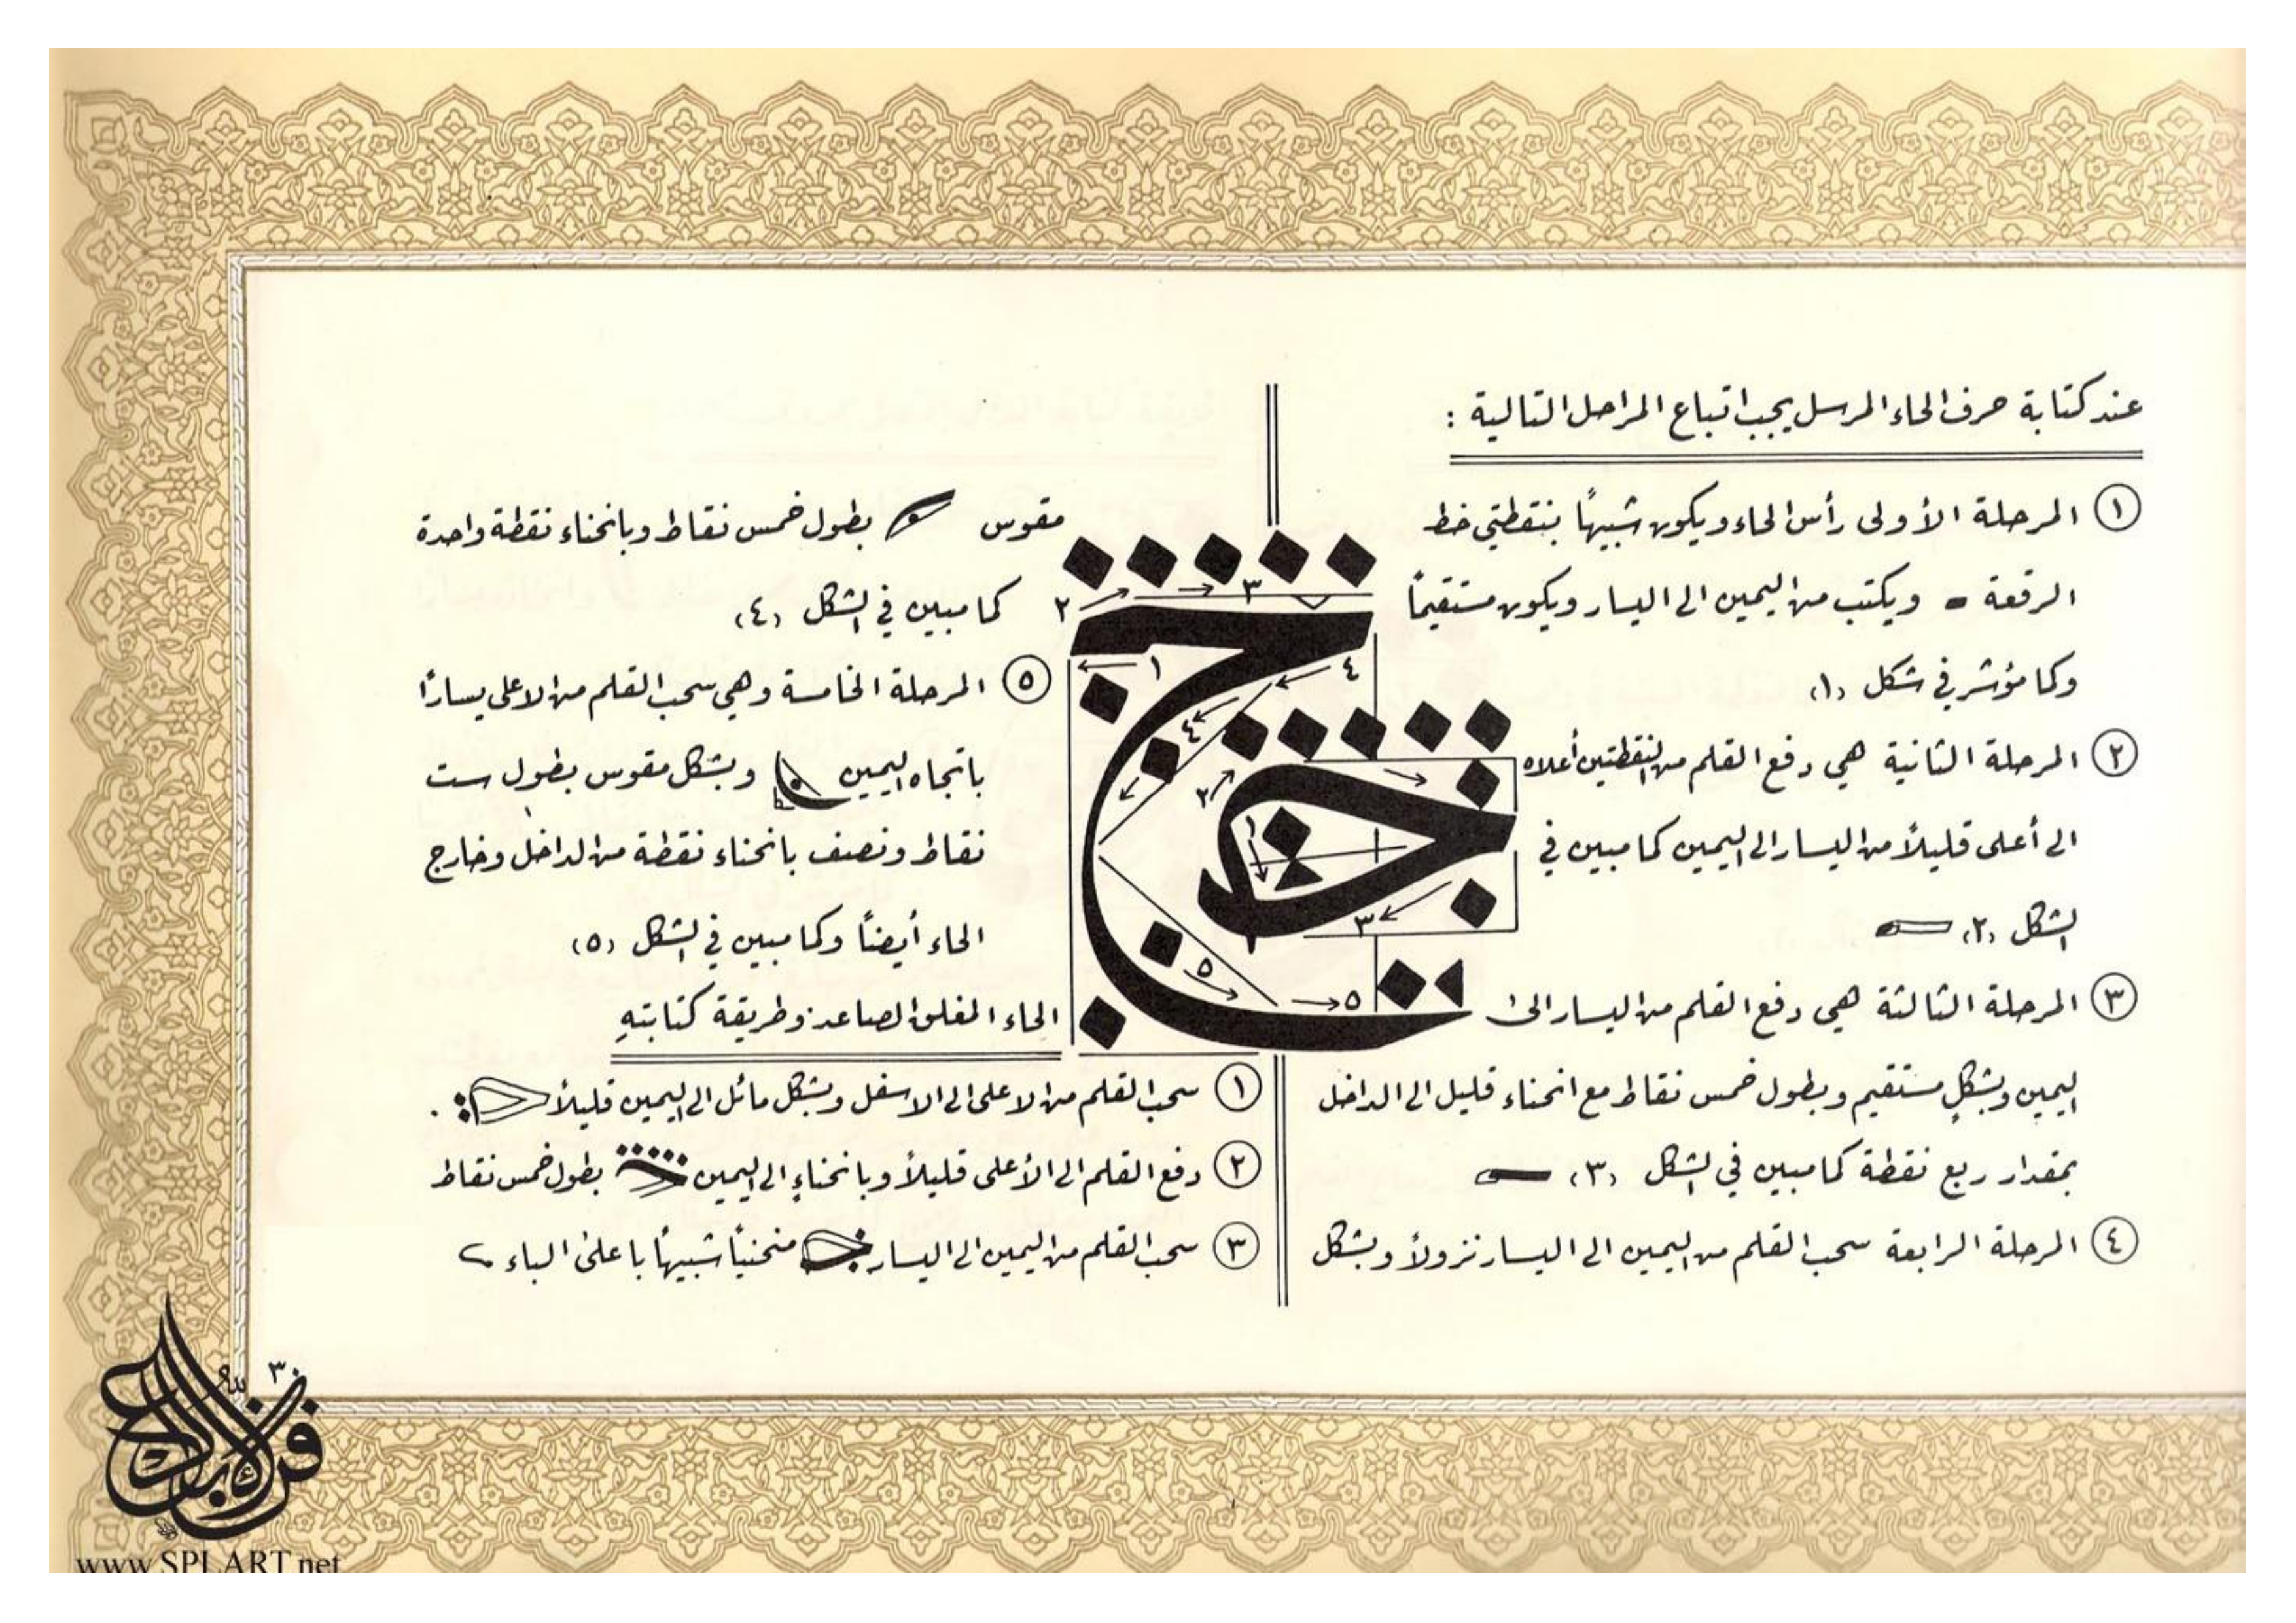 عند كتابة حرف الحاء المرسل يجب اتباع المراحل التالية :
١ المرحلة الأولى رأس الحاء ويكون شبيهاً بنقطتي خط
الرقعة ويكتب من اليمين الى اليسار ويكون مستقيماً
وكما مؤشر في شكل (١)
٢ المرحلة الثانية هي دفع القلم من النقطتين أعلاه
الى أعلى قليلاً من اليسار الى اليمين كما مبين في
الشكل (٢)
٣ المرحلة الثالثة هي دفع القلم من اليسار الى
اليمين وبشكلٍ مستقيم وبطول خمس نقاط مع انحناء قليل الى الداخل
بمقدار ربع نقطة كما مبين في الشكل (٣)
٤ المرحلة الرابعة سحب القلم من اليمين الى اليسار نزولاً وبشكل
مقوس بطول خمس نقاط وبانحناء نقطة واحدة
كما مبين في الشكل (٤)
٥ المرحلة الخامسة وهي سحب القلم من الاعلى يساراً
باتجاه اليمين وبشكل مقوس بطول ست
نقاط ونصف بانحناء نقطة من الداخل وخارج
الحاء أيضاً وكما مبين في الشكل (٥)
الحاء المغلق الصاعد وطريقة كتابتهِ
١ سحب القلم من الاعلى الى الاسفل وبشكل مائل الى اليمين قليلاً .
٢ دفع القلم الى الأعلى قليلاً وبانحناءٍ الى اليمين بطول خمس نقاط
٣ سحب القلم من اليمين الى اليسار منحنياً شبيهاً باعلى الباء
٣
٢
١
٤
٤
٢
١
٣
٥
٥
٣٠
www.SPLART.net